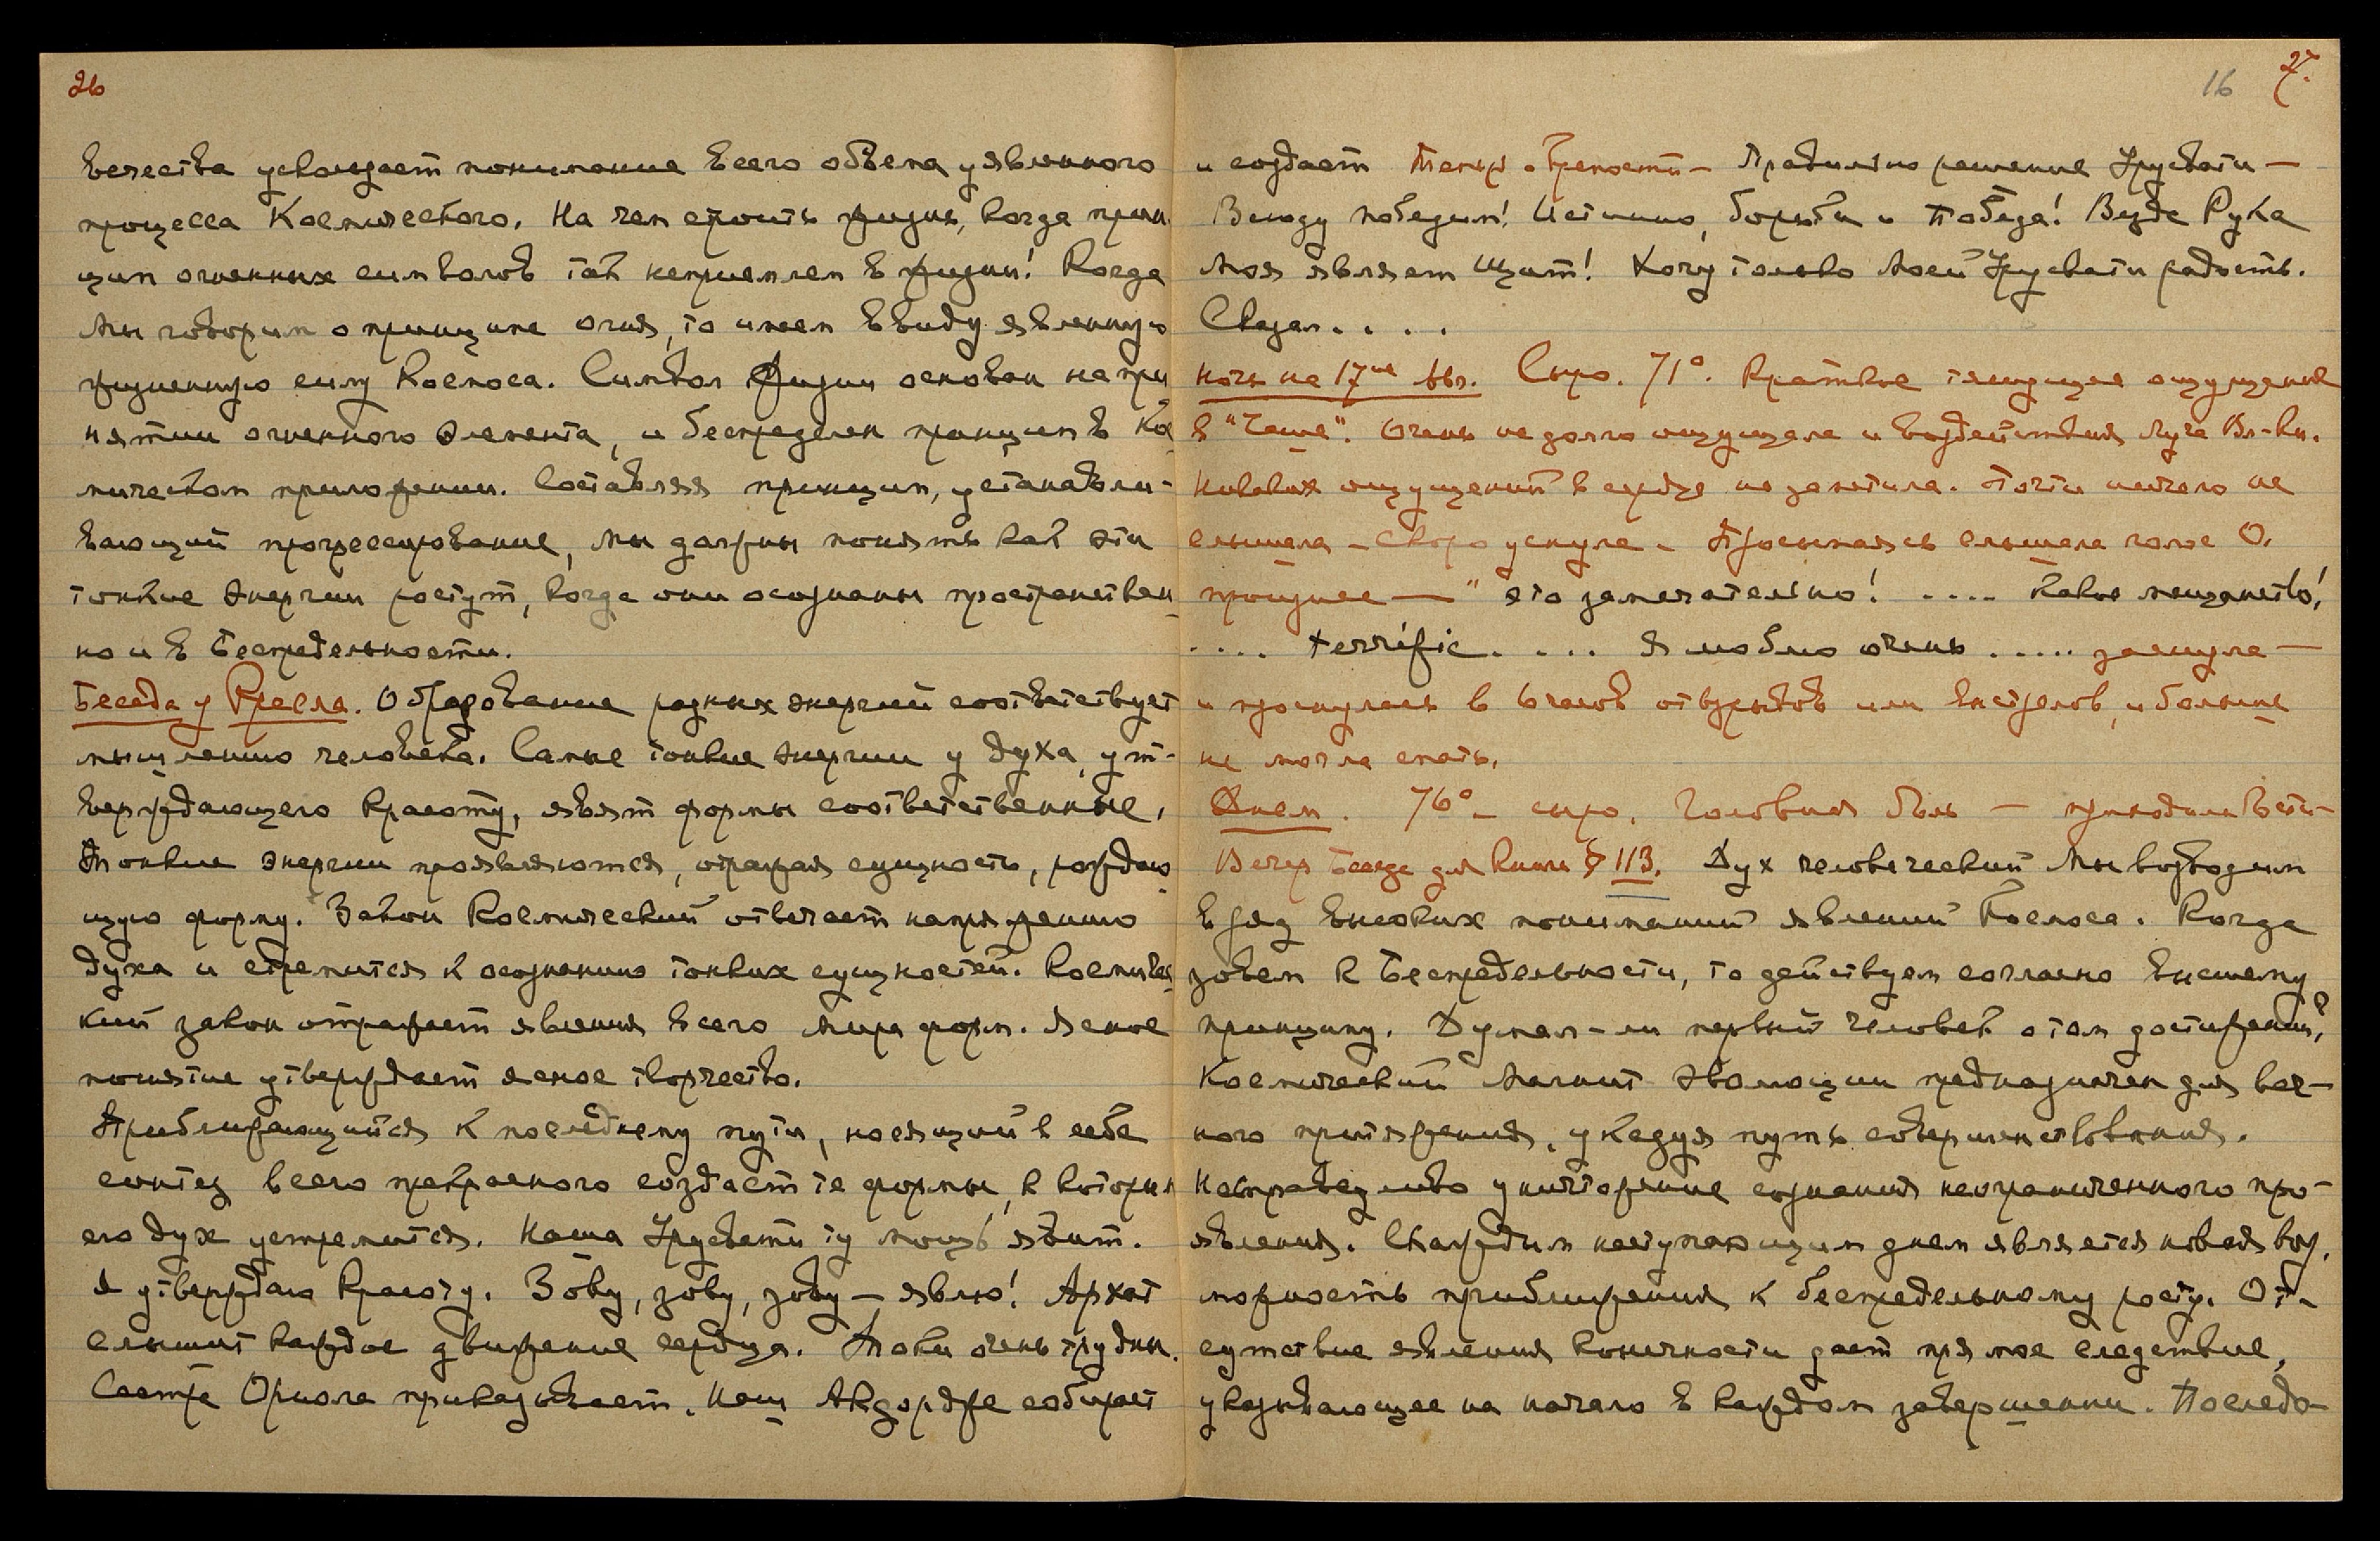 26
вечества усваивает понимание всего объема уявленного
процесса Космического. На чем строить жизнь, когда прин-
цип огненных символов так неприемлем в жизни! Когда
мы говорим о принципе огня, то имеем ввиду явленную
жизненную силу Космоса. Символ Жизни основан на при
нятии огненного элемента, и беспределен принцип в Кос
мическом приложении. Составляя принцип, устанавли-
вающий прогрессирование, мы должны понять как эти
тонкие энергии растут, когда они осознаны пространствен
но и в Беспредельности.
Беседа у Кресла. Образование разных энергий соответствует
мышлению человека. Самые тонкие энергии у духа, ут-
верждающего Красоту, явят формы соответственные.
Тонкие энергии проявляются, отражая сущность, рождаю
щую форму. Закон Космический отвечает напряжению
духа и стремится к осознанию тонких сущностей. Космичес
кий закон отражает явления всего мира форм. Ясное
понятие утверждает ясное творчество.
Приближающийся к последнему пути, носящий в себе
синтез всего прекрасного создаст те формы, к которым
его дух устремится. Наша Урусвати ту мощь явит.
Я утверждаю Красоту. Зову, зову, зову — явлю! Архат
слышит каждое движение сердца. Токи очень трудны.
Сестра Ориола приказывает. Наш Акдордже собирает
16 27.
и создает Теперь о бренности — Правильно решение Урусвати —
Всюду победим! Истинно, борьба и победа! Везде Рука
Моя являет Щит! Хочу только моей Урусвати радость.
Сказал. . . .
Ночь на 17ое Авг. Сыро. 71°. Краткое тянущее ощущение
в "Чаше". Очень недолго ощущала и воздействия Луча Вл-ки.
Никаких ощущений в сердце не заметила. Почти ничего не
слышала – скоро уснула – Просыпаясь слышала голос О.
— " это замечательно! .... какое мещанство!
.... terrific. . . . я люблю очень ..... заснула —
и проснулась в 6 часов от взрывов или выстрелов, и больше
не могла спать.
Днем. 76° – сыро. Головная боль —
Вечер Беседа для книги § 113. Дух человеческий мы возводим
в ряд высоких пониманий явлений Космоса. Когда
зовем к Беспредельности, то действуем согласно высшему
принципу. Думал-ли первый человек о том достижении?
Космический магнит эволюции предназначен для веч-
ного притяжения, указуя путь совершенствования.
Несправедливо уничтожение сознания неограниченного про-
явления. С каждым наступающим днем является новая воз-
можность приближения к беспредельному росту. От-
сутствие явления конечности дает прямое следствие,
указывающее на начало в каждом завершении. Последо-